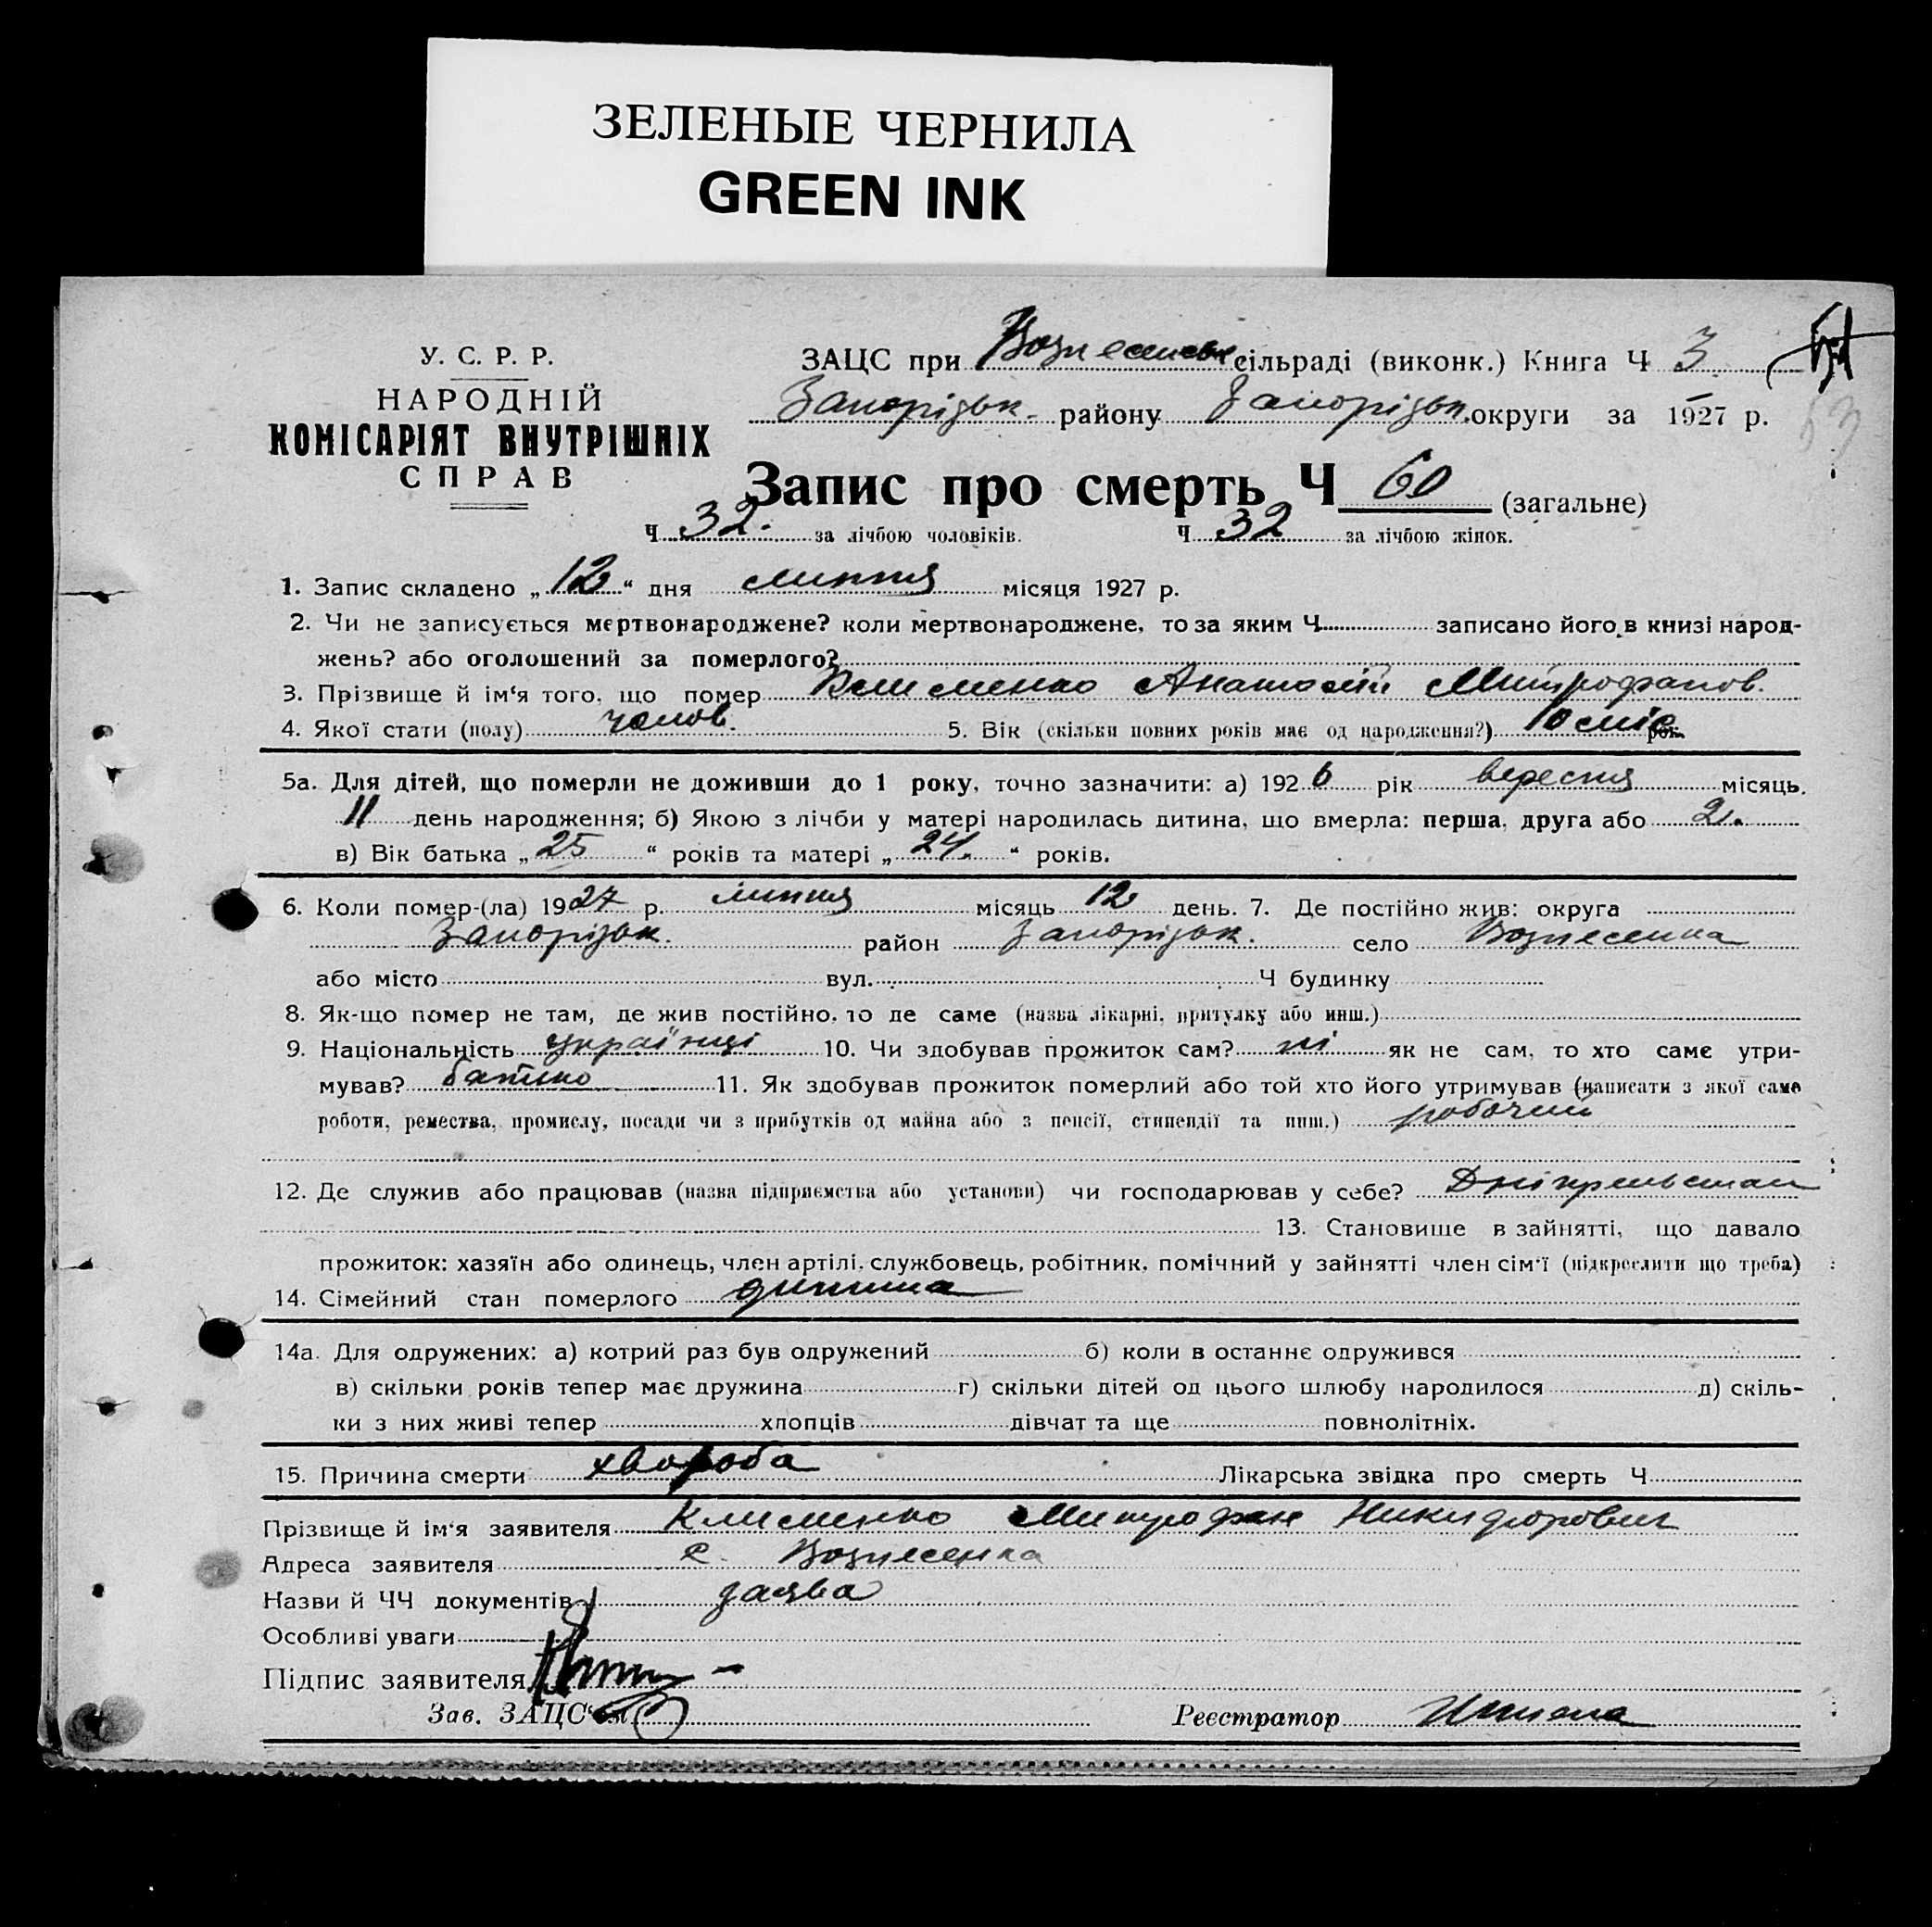 ЗЕЛЕНЫЕ ЧЕРНИЛА
GREEN INK
У. С. Р. Р.
НАРОДНІЙ
КОМІСАРІЯТ ВНУТРІШНІХ
СПРАВ
ЗАЦС при Вознесенськ сільраді (виконк.) Книга Ч 3
Запорізьк. району Запорізьк. округи за 1927 р.
53
Запис про смерть Ч 60 (загальне)
Ч 32. за лічбою чоловіків. Ч 32 за лічбою жінок.
1. Запис складено „12“ дня липня місяця 1927 р.
2. Чи не записується мертвонароджене? коли мертвонароджене, то за яким Ч записано його в книзі народ-
жень? або оголошений за померлого?
3. Прізвище й ім‘я того, що помер Клименко Анатолій Митрофанов.
4. Якої стати (полу) чолов. 5. Вік (скільки повних років має од народження?) 10 міс рок.
5а. Для дітей, що померли не доживши до 1 року, точно зазначити: а) 1926 рік вересня місяць.
11 день народження; б) Якою з лічби у матері народилась дитина, що вмерла: перша, друга або 2.
в) Вік батька „25“ років та матері „24.“ років.
6. Коли помер-(ла) 1927 р. липня місяць 12 день. 7. Де постійно жив: округа
Запорізьк. район Запорізьк. село Вознесенка
або місто вул. Ч будинку
8. Як-що помер не там, де жив постійно, то де саме (назва лікарні, притулку або инш.)
9. Національність українці 10. Чи здобував прожиток сам? ні як не сам, то хто саме утри-
мував? батько 11. Як здобував прожиток померлий або той хто його утримував (написати з якої саме
роботи, ремества, промислу, посади чи з прибутків од майна або з пенсії, стипендії та инш.) робочий
12. Де служив або працював (назва підприємства або установи) чи господарював у себе?
13. Становище в зайнятті, що давало
прожиток: хазяїн або одинець, член артілі, службовець, робітник, помічний у зайнятті член сім‘ї (підкреслити що треба)
14. Сімейний стан померлого дитина
14а. Для одружених: а) котрий раз був одружений б) коли в останнє одружився
в) скільки років тепер має дружина г) скільки дітей од цього шлюбу народилося д) скіль-
ки з них живі тепер хлопців дівчат та ще повнолітніх.
15. Причина смерти хвороба Лікарська звідка про смерть Ч
Прізвище й ім‘я заявителя Клименко Митрофан Никифорович
Адреса заявителя с. Вознесенка
Назви й ЧЧ документів заява
Особливі уваги
Підпис заявителя
Зав. ЗАЦС‘ом Реєстратор